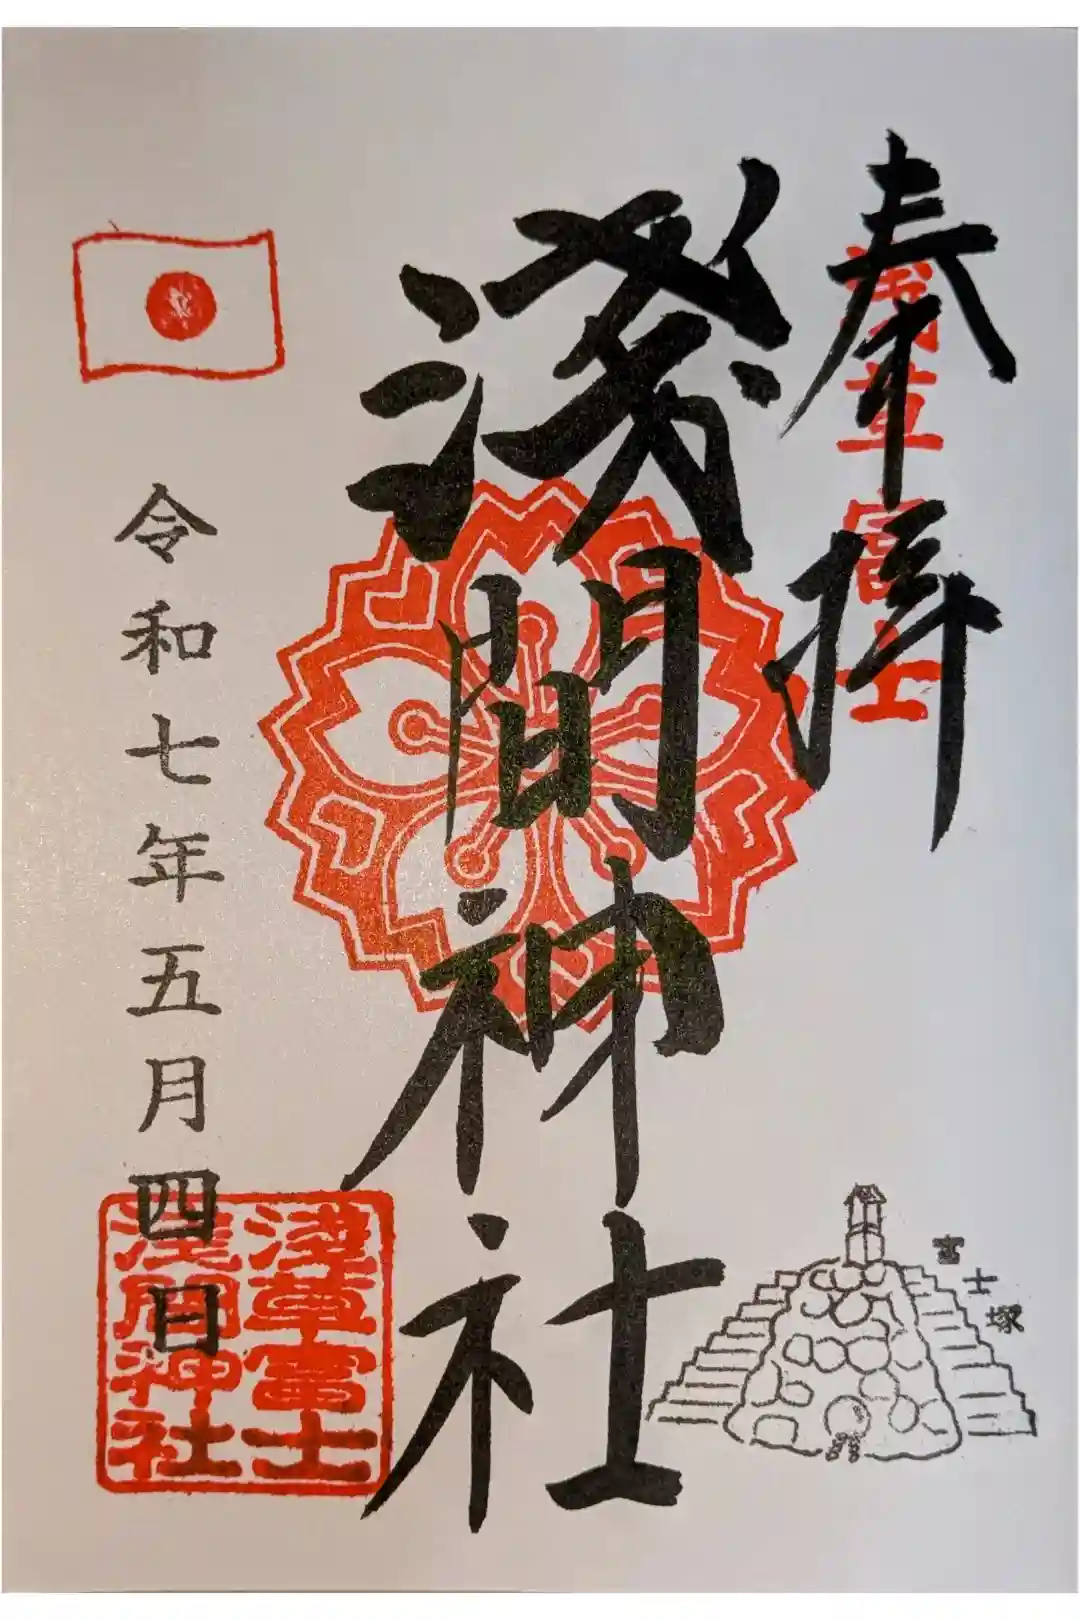 奉拝
浅草富士
淺間神社
令和七年五月四日
淺草富士
淺間神社
富士塚